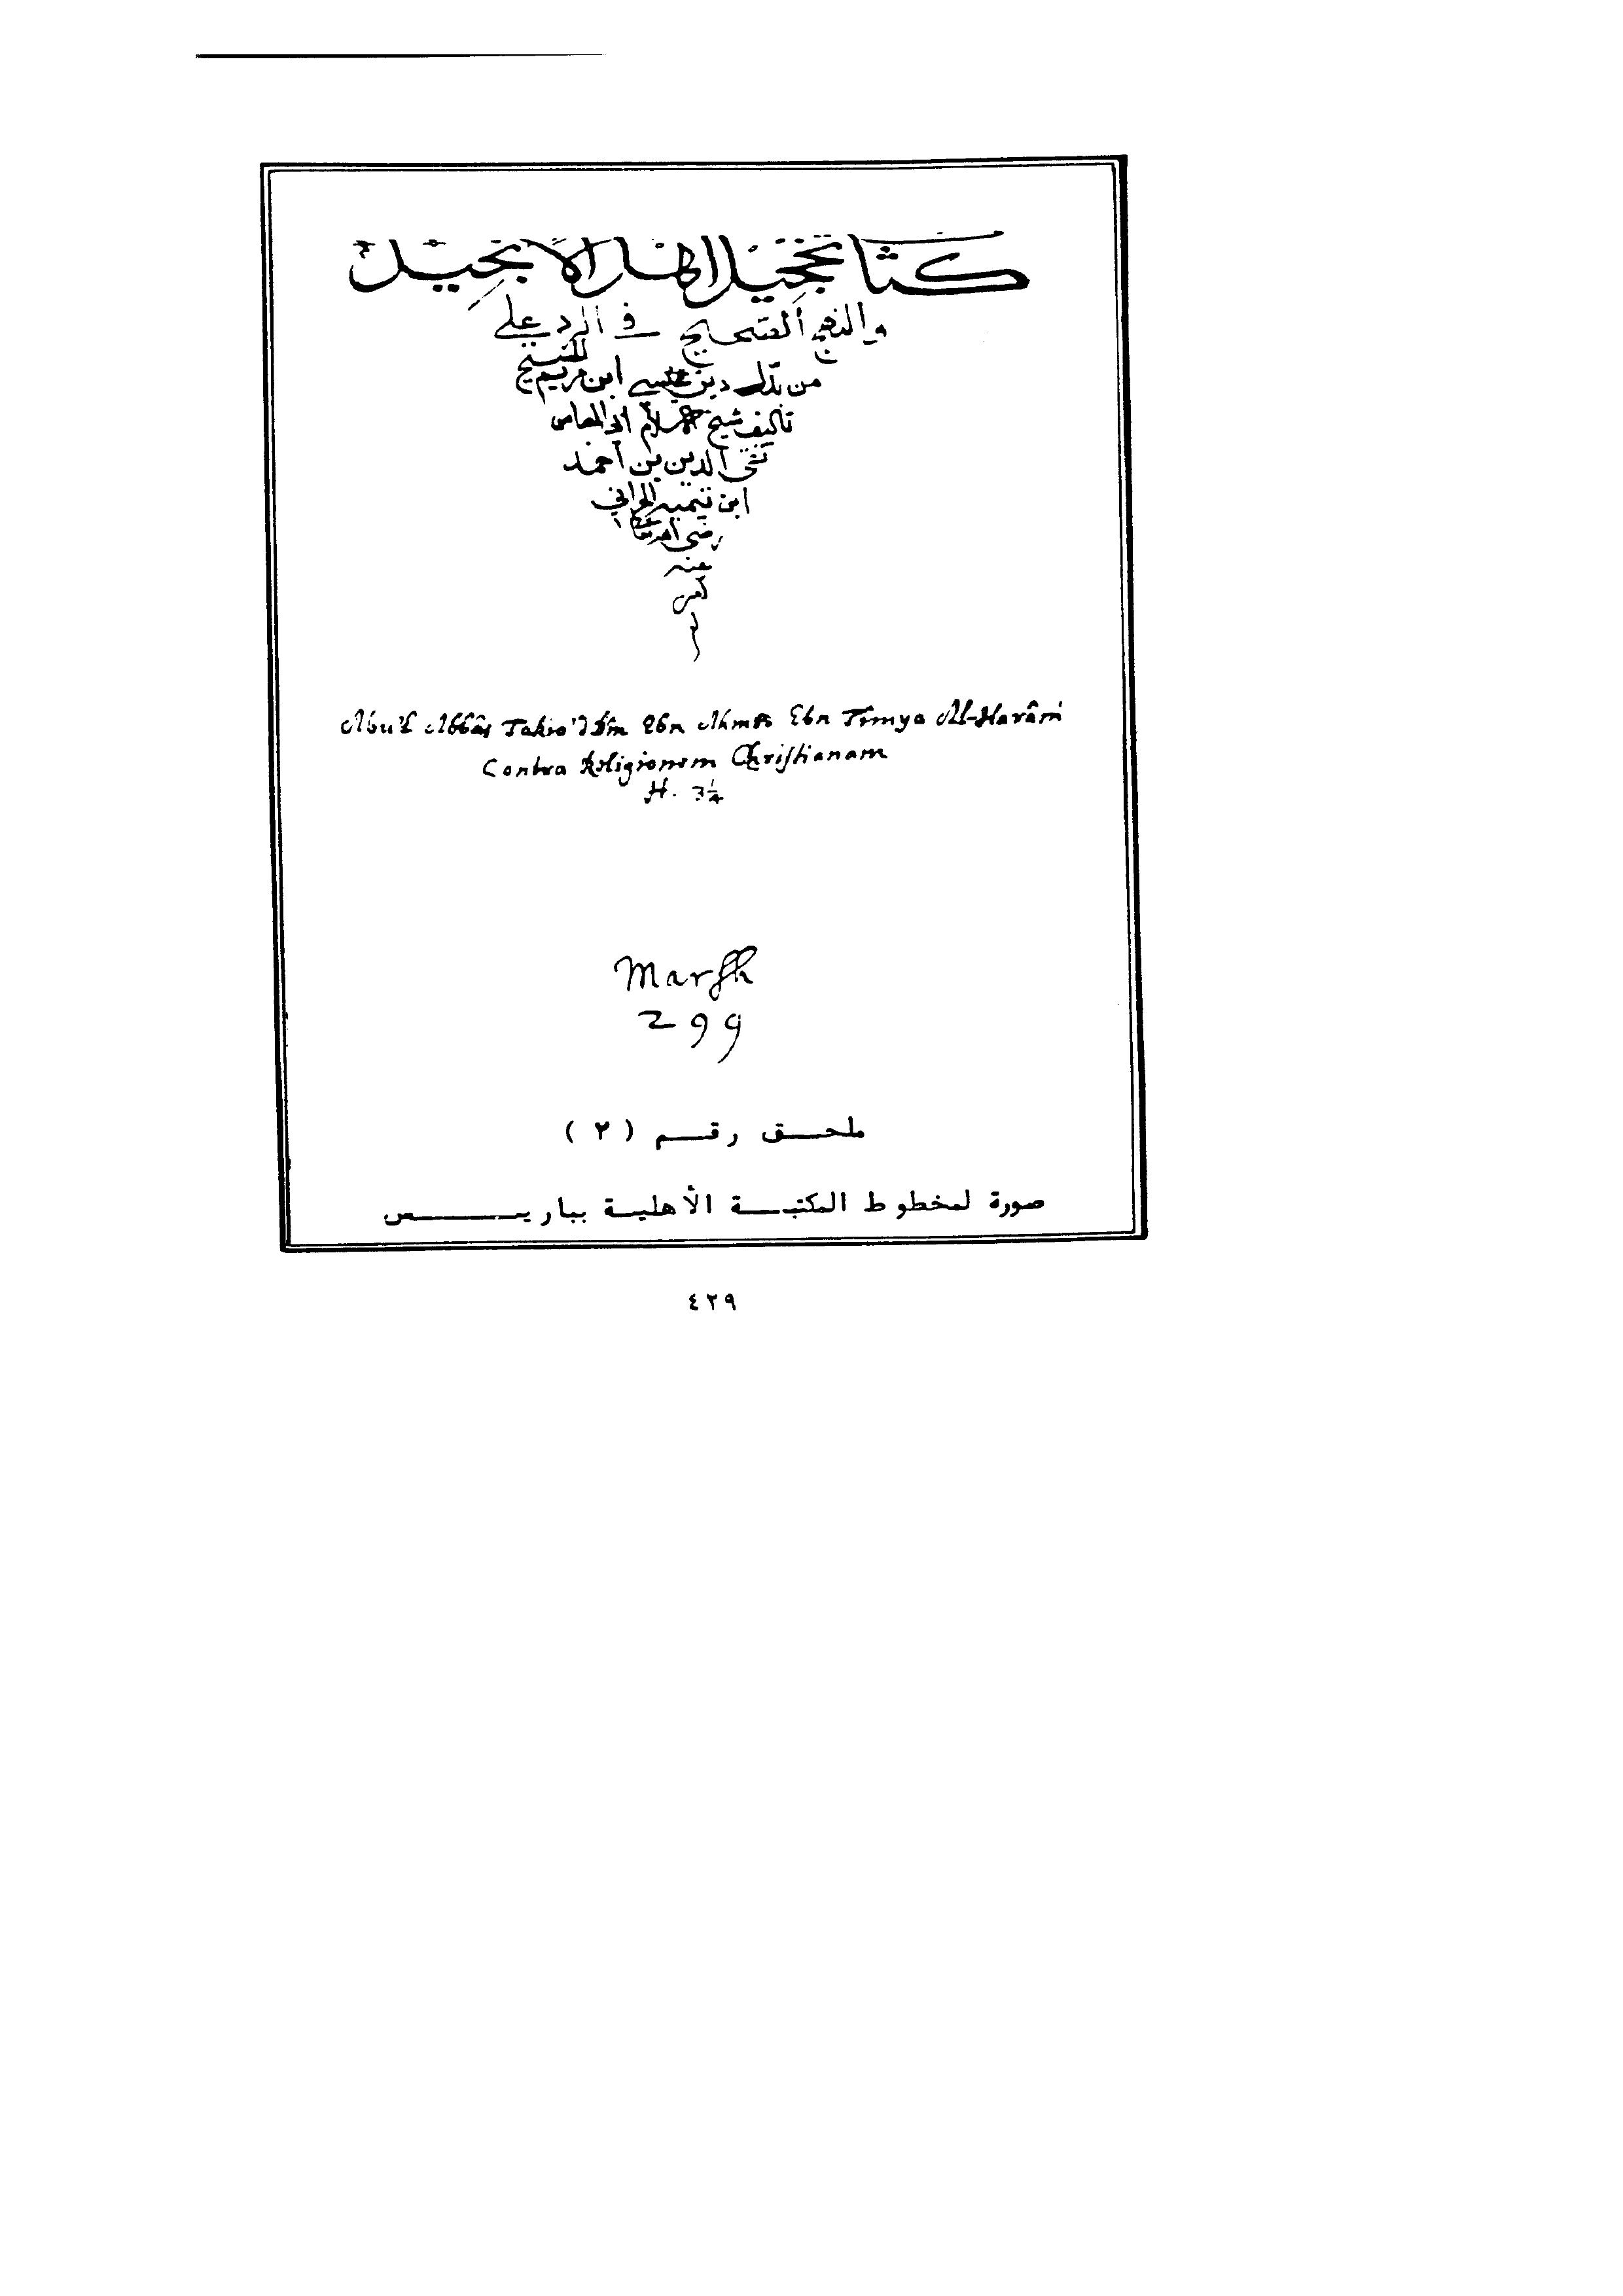 كتاب تخجيل اهل الانجيل
والنهج الصحيح في الرد على
من بدل دين عيسى ابن مريم المسيح
تأليف شيخ الاسلام ابي العباس
تقي الدين بن أحمد
ابن تيميه الحراني
رضي الله تعالى
عنه
Abu'l Abbâs Takio'ddîn Ebn Ahmed Ebn Tîmya Al-Harâni
Contra Religionem Christianam
H. 3¼
Marsh
299
ملحق رقم (٢)
صورة لمخطوط المكتبة الأهلية بباريس
٤٢٩